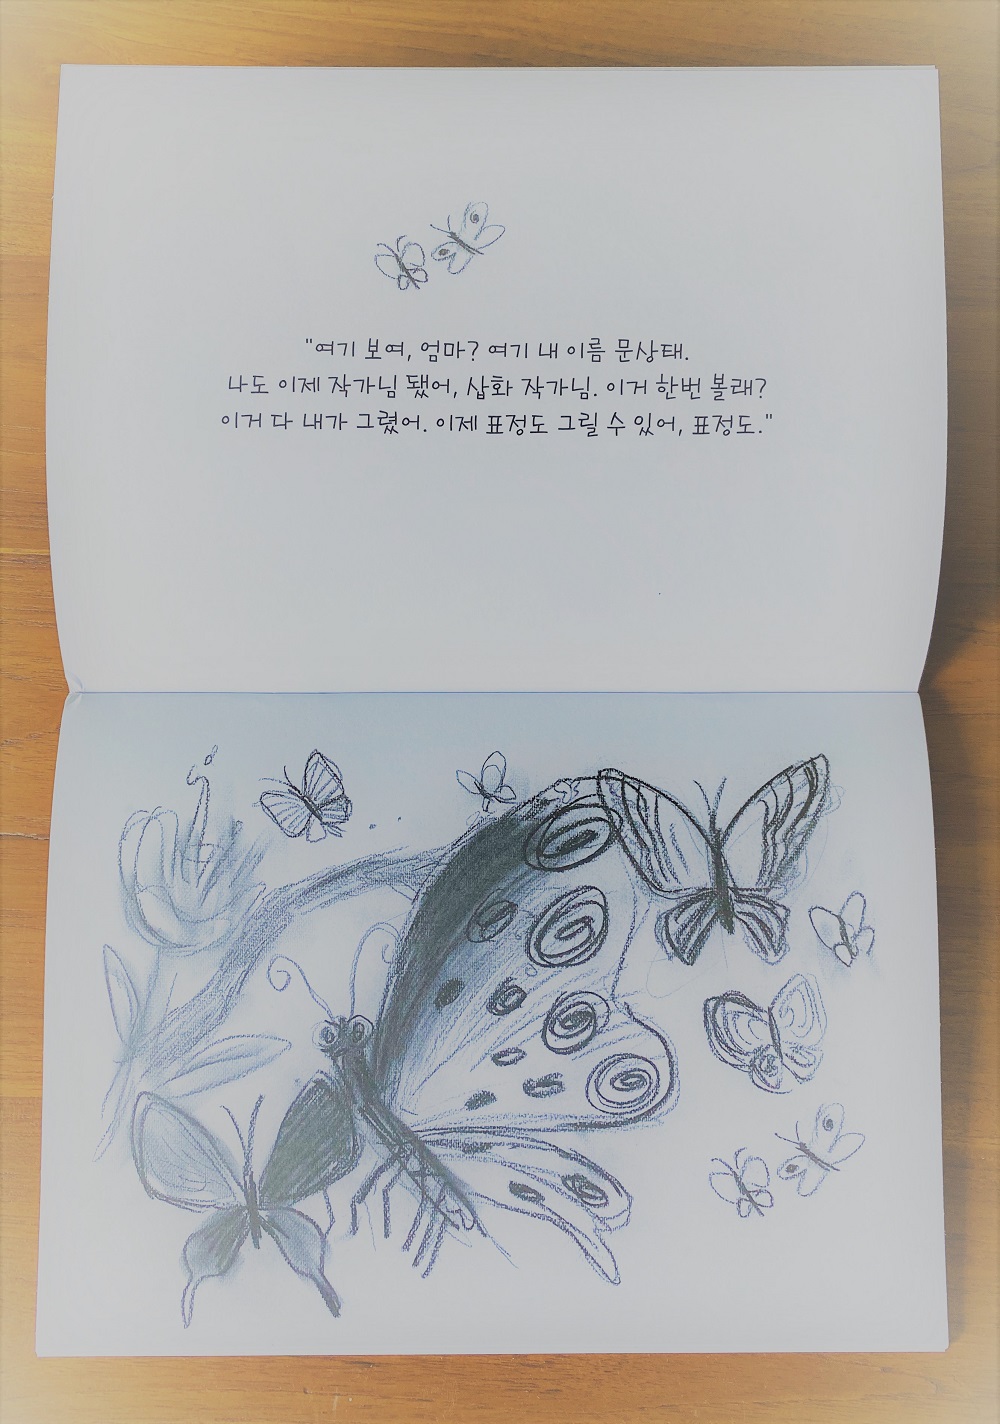 "여기 보여, 엄마? 여기 내 이름 문상태.
나도 이제 작가님 됐어, 삽화 작가님. 이거 한번 볼래?
이거 다 내가 그렸어. 이제 표정도 그릴 수 있어, 표정도."